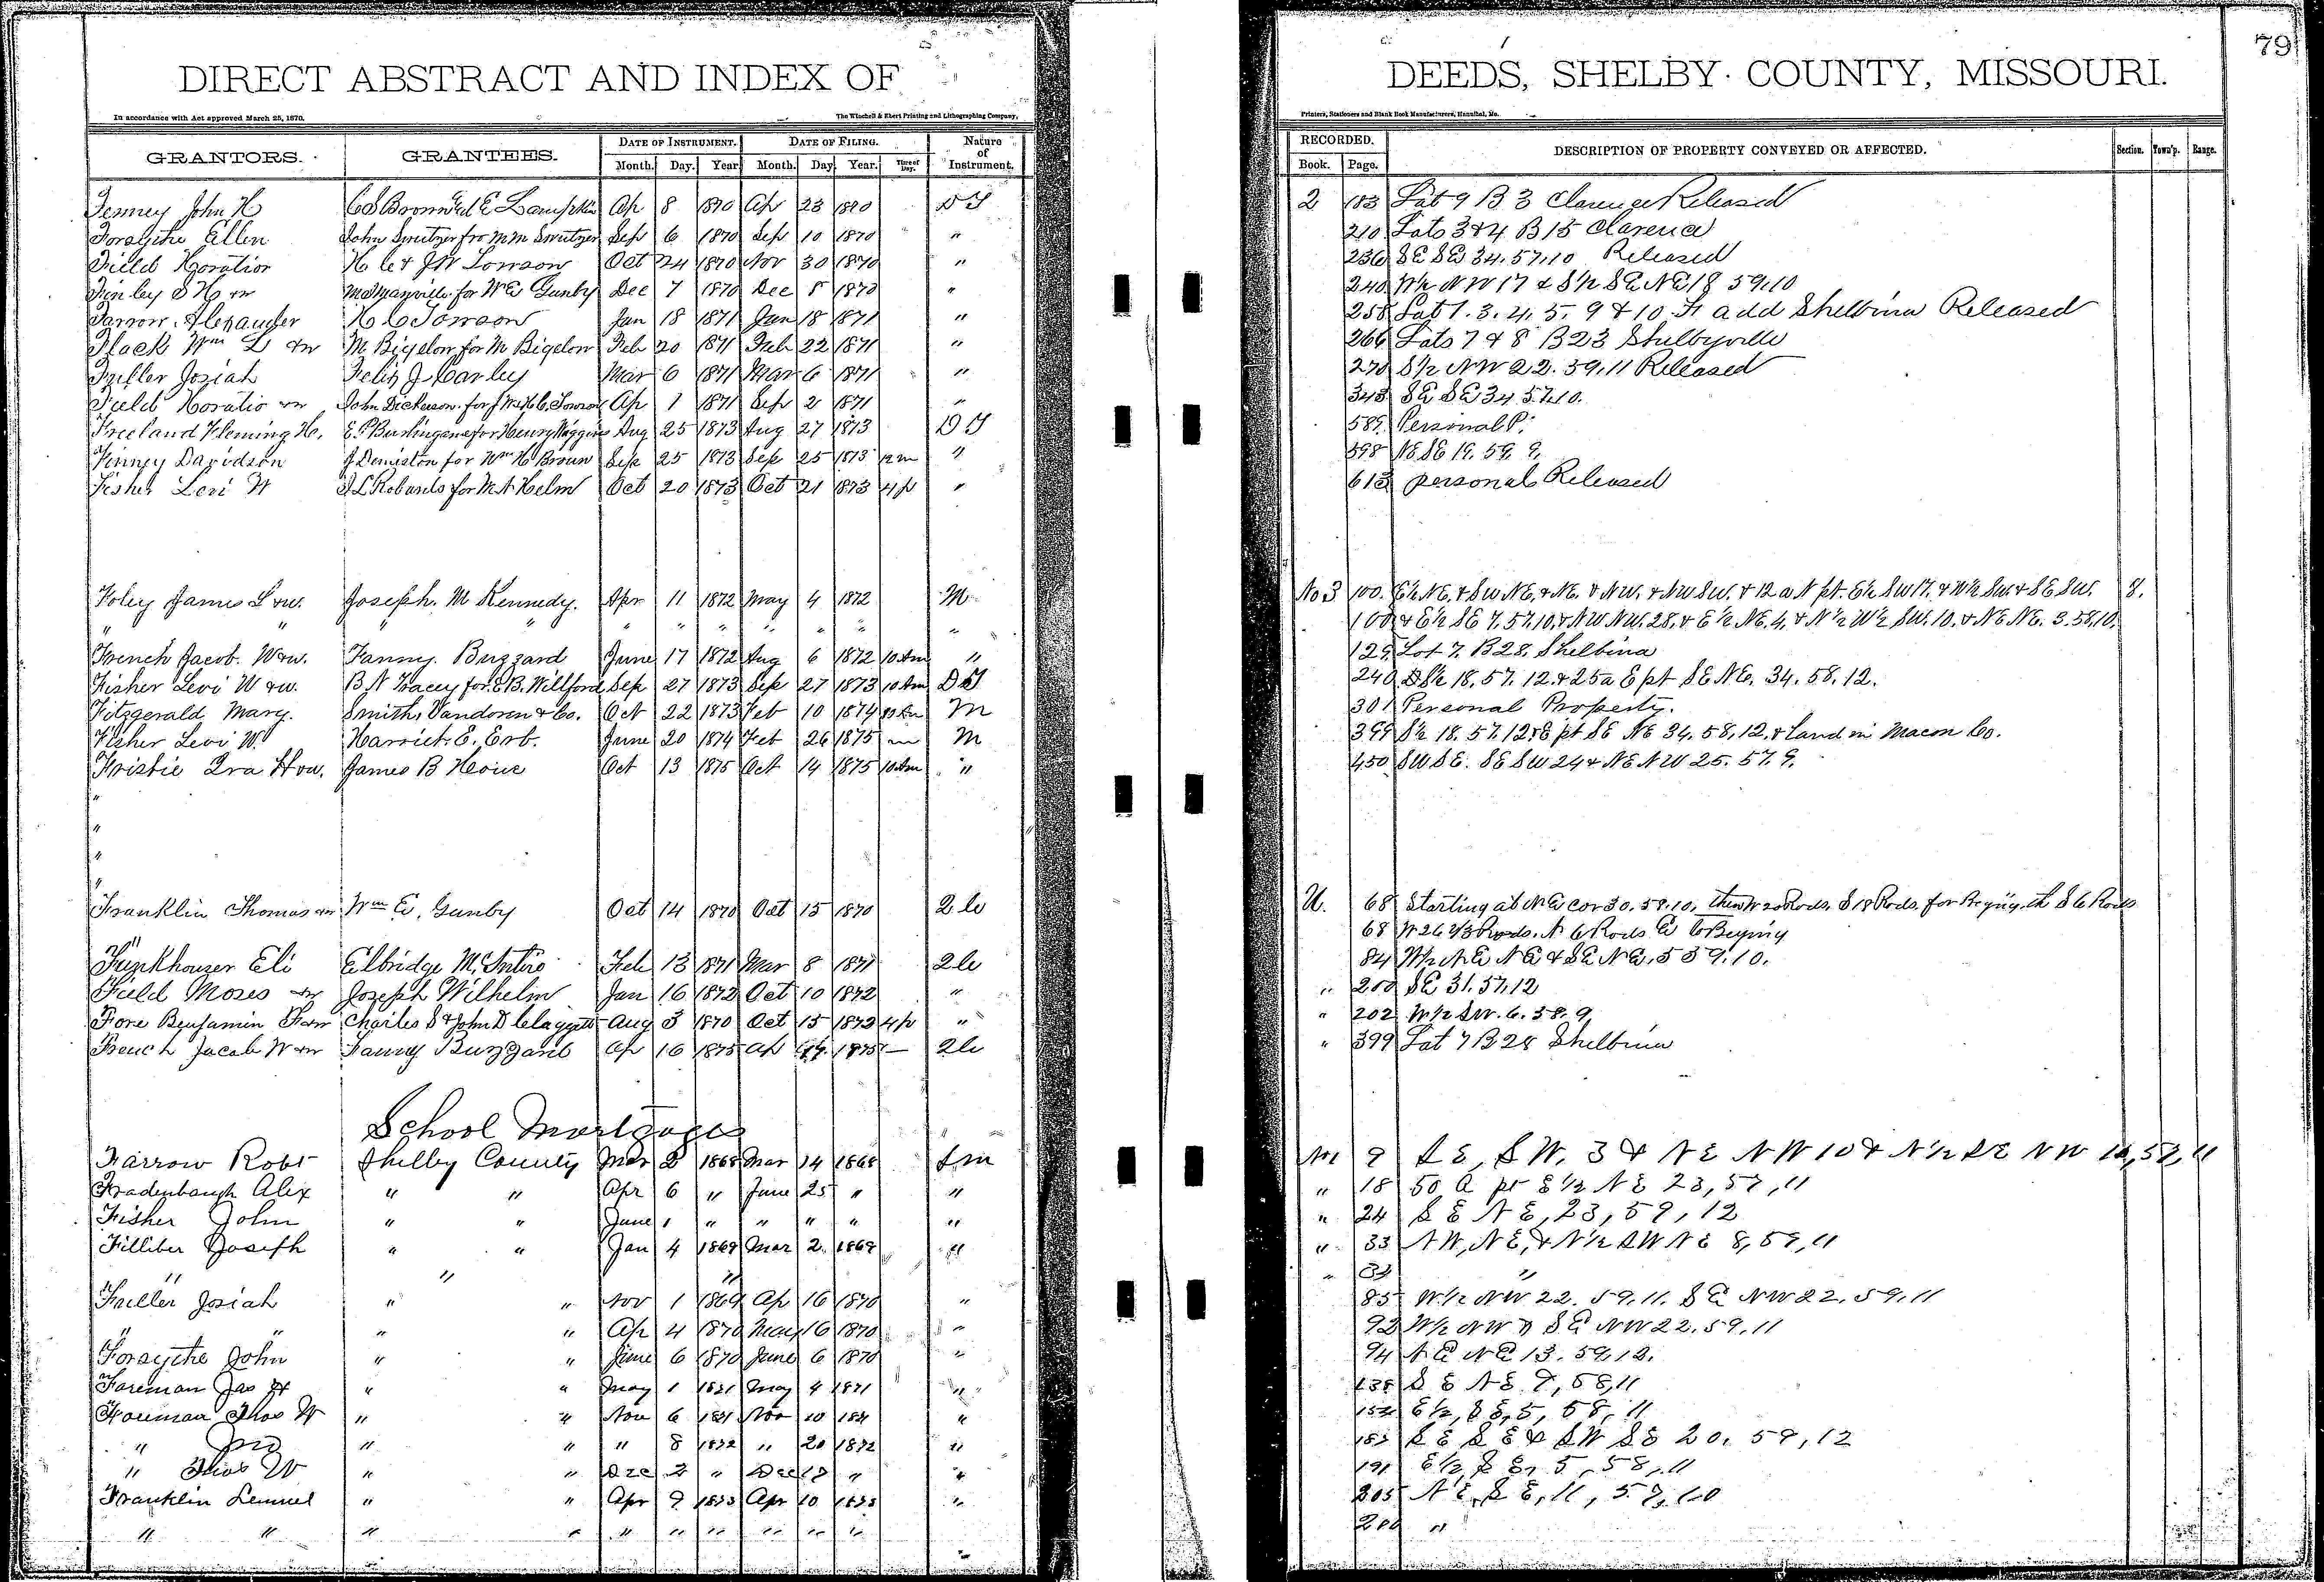 79
DIRECT ABSTRACT AND INDEX OF DEEDS, SHELBY COUNTY, MISSOURI.
In accordance with Act approved March 25, 1870. The Winchell & Ebert Printing and Lithographing Company, Printers, Stationers and Blank Book Manufacturers, Hannibal, Mo.
GRANTORS. GRANTEES. DATE OF INSTRUMENT. DATE OF FILING. Nature of Instrument. RECORDED. DESCRIPTION OF PROPERTY CONVEYED OR AFFECTED. Section. Town'p. Range.
Month. Day. Year. Month. Day. Year. Time of Day. Book. Page.
John H Ap 8 1870 Ap 23 1870 DT 2 183 Lot 9 B 3 Clarence Released
Forsythe Ellen John Switzer for M M Switzer Sep 6 1870 Sep 10 1870 " 210 Lots 3 & 4 B 15 Clarence
Field Horatio Oct 24 1870 Nov 30 1870 " 236 SE SE 34. 57. 10 Released
Finley S H Manville for W E Gunby Dec 7 1870 Dec 8 1870 " 240 W½ NW 17 & S½ SE NE 18 59. 10
Farrow Alexander Jan 18 1871 Jan 18 1871 " 258 Lot 1. 3. 4. 5. 9 & 10 add Shelbina Released
Flack Wm L M. Bigelow for M Bigelow Feb 20 1871 Feb 22 1871 " 266 Lots 7 & 8 B 23 Shelbyville
Fuller Josiah Felix J Carley Mar 6 1871 Mar 6 1871 " 270 S½ NW 22. 59. 11 Released
Field Horatio John Dickerson for Ap 1 1871 Sep 2 1871 " 343 SE SE 34 57. 10.
Freeland Fleming H. E P Burlingame for Henry Wiggins Aug 25 1873 Aug 27 1873 DT 589 Personal P.
Finney Davidson J Demiston for Wm H Brown Sep 25 1873 Sep 25 1873 12 m " 598 NE SE 19. 59. 9.
Fisher Levi W J L Robards for M A Helm Oct 20 1873 Oct 21 1873 4 p " 613 personal Released
Foley James L &w. Joseph. M Kennedy. Apr 11 1872 May 4 1872 M No 3 100. E½ NE, & SW NE, & NE & NW. & NW SW. & 12 a N pt. E½ SW 17. & W½ SW. & SE SW. 8.
" " " " " " " " " " 100 & E½ SE 7. 57. 10. & NW NW. 28. & E½ NE. 4. & N½ W½ SW. 10. & NE NE. 3. 58. 10.
French Jacob. W &w. Fanny. Buzzard June 17 1872 Aug 6 1872 10 Am " 129 Lot 7. B 28. Shelbina
Fisher Levi W &w. B N Tracey for E B. Willford Sep 27 1873 Sep 27 1873 10 Am DT 240 S½ 18. 57. 12. & 25 a E pt SE NE. 34. 58. 12.
Fitzgerald Mary. Smith, Vandoren & Co. Oct 22 1873 Feb 10 1874 M 301 Personal Property.
Fisher Levi W. Harriet. E. Erb. June 20 1874 Feb 26 1875 M 399 S½ 18. 57. 12 & E pt SE NE 34. 58. 12. & Land in Macon Co.
Fristie Ira H &w. James B Heoive Oct 13 1875 Oct 14 1875 10 Am " 450 SW SE. SE SW 24 & NE NW 25. 57. 9.
"
"
"
"
Franklin Thomas Wm E. Gunby Oct 14 1870 Oct 15 1870 U. 68 Starting at NE cor 30. 58. 10. then W 20 Rods. S 18 Rods. for S 6 Rods
" 68 W 26 2/3 Rods. N 6 Rods E to
Funkhouser Eli Elbridge McIntire Feb 13 1871 Mar 8 1871 84 W½ NE NE & SE NE. 5 59. 10.
Field Moses Joseph Wilhelm Jan 16 1872 Oct 10 1872 " " 200 SE 31. 57. 12
Fore Benjamin F Charles S & John D Claggett Aug 3 1870 Oct 15 1872 4 p " " 202 W½ SW. 6. 58. 9
French Jacob W Fanny Buzzard Ap 16 1875 Ap 1875 " 399 Lot 7 B 28 Shelbina
School Mortgages
Farrow Robt Shelby County Mar 2 1868 Mar 14 1868 Sm No 1 9 SE, SW. 3 & NE NW 10 & N½ SE NW 10, 57, 11
Fradenbaugh Alex " " Apr 6 " June 25 " " " 18 50 a pt E½ NE 23, 57, 11
Fisher John " " June 1 " " " " " " 24 SE NE, 23, 59, 12
Filliber Joseph " " Jan 4 1869 Mar 2. 1869 " " 33 NW, NE, & N½ SW NE 8, 59, 11
" " " " 34 "
Fuller Josiah " " Nov 1 1869 Ap 16 1870 " 85 W½ NW 22. 59. 11. SE NW 22. 59. 11
" " " " Ap 4 1870 May 16 1870 " 92 W½ NW & SE NW 22. 59. 11
Forsythe John " " June 6 1870 June 6 1870 " 94 NE NE 13. 59. 12.
Foreman Jas " " May 1 1871 May 4 1871 " 138 SE NE 7, 58, 11
Foreman Thos W " " Nov 6 1871 Nov 10 1871 " 152 E½, SE, 5, 58, 11
" Jno " " " 8 1872 " 20 1872 " 183 SE SE & SW SE 20. 59, 12
" Thos W " " Dec 2 " Dec 18 " " 191 E½ SE, 5, 58, 11
Franklin Lemuel " " Apr 9 1873 Apr 10 1873 " 205 NE, SE, 11, 57, 10
" " " " " " " " " " 206 "